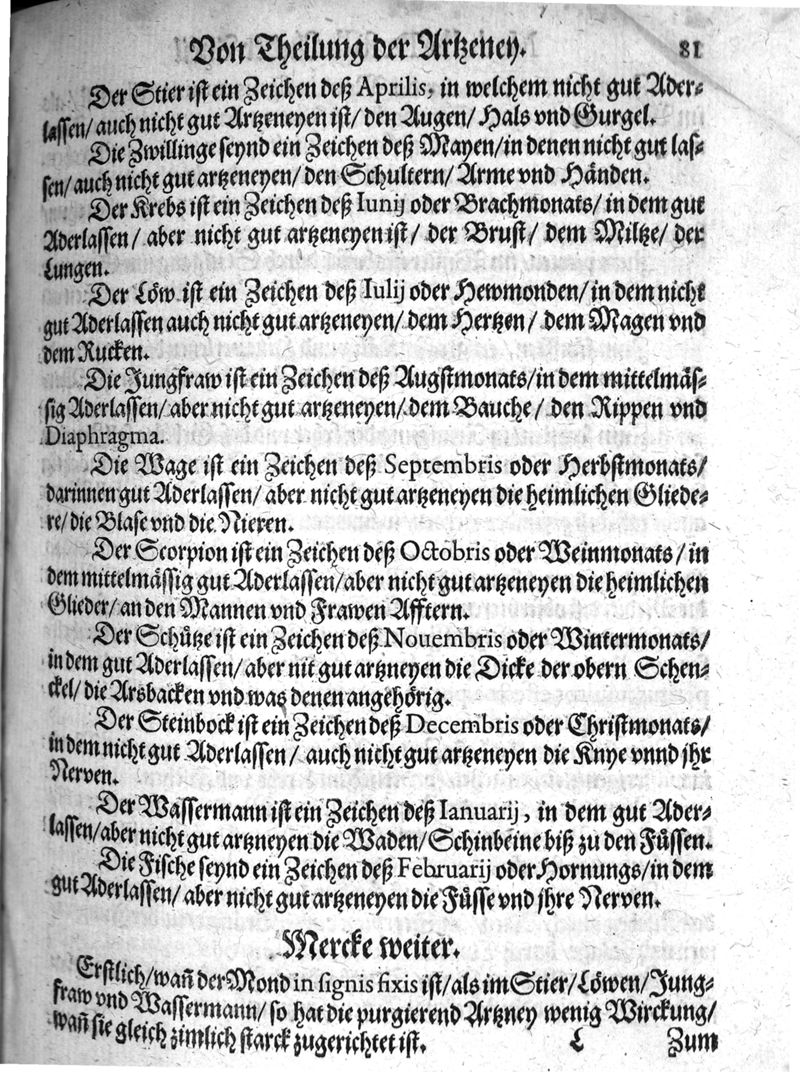 Von Theilung der Artzeney. 81
Der Stier ist ein Zeichen deß Aprilis, in welchem nicht gut Ader-
lassen/ auch nicht gut Artzeneyen ist/ den Augen/ Hals vnd Gurgel.
Die Zwillinge seynd ein Zeichen deß Mayen/ in denen nicht gut las-
sen/ auch nicht gut artzeneyen/ den Schultern/ Arme vnd Händen.
Der Krebs ist ein Zeichen deß Iunij oder Brachmonats/ in dem gut
Aderlassen/ aber nicht gut artzeneyen ist/ der Brust/ dem Miltze/ der
Lungen.
Der Löw ist ein Zeichen deß Iulij oder Hewmonden/ in dem nicht
gut Aderlassen auch nicht gut artzeneyen/ dem Hertzen/ dem Magen vnd
dem Rucken.
Die Jungfraw ist ein Zeichen deß Augstmonats/ in dem mittelmäs-
sig Aderlassen/ aber nicht gut artzeneyen/ dem Bauche/ den Rippen vnd
Diaphragma.
Die Wage ist ein Zeichen deß Septembris oder Herbstmonats/
darinnen gut Aderlassen/ aber nicht gut artzeneyen die heimlichen Gliede-
re/ die Blase vnd die Nieren.
Der Scorpion ist ein Zeichen deß Octobris oder Weinmonats/ in
dem mittelmässig gut Aderlassen/ aber nicht gut artzeneyen die heimlichen
Glieder/ an den Mannen vnd Frawen Afftern.
Der Schütze ist ein Zeichen deß Nouembris oder Wintermonats/
in dem gut Aderlassen/ aber nit gut artzneyen die Dicke der obern Schen-
ckel/ die Arsbacken vnd was denen angehörig.
Der Steinbock ist ein Zeichen deß Decembris oder Christmonats/
in dem nicht gut Aderlassen/ auch nicht gut artzeneyen die Knye vnnd jhr
Nerven.
Der Wassermann ist ein Zeichen deß Ianuarij, in dem gut Ader-
lassen/ aber nicht gut artzneyen die Waden/ Schinbeine biß zu den Füssen.
Die Fische seynd ein Zeichen deß Februarij oder Hornungs/ in dem
gut Aderlassen/ aber nicht gut artzeneyen die Füsse vnd jhre Nerven.
Mercke weiter.
Erstlich/ wañ der Mond in signis fixis ist/ als im Stier/ Löwen/ Jung-
fraw vnd Wassermann/ so hat die purgierend Artzney wenig Wirckung/
wañ sie gleich zimlich starck zugerichtet ist.
L Zum